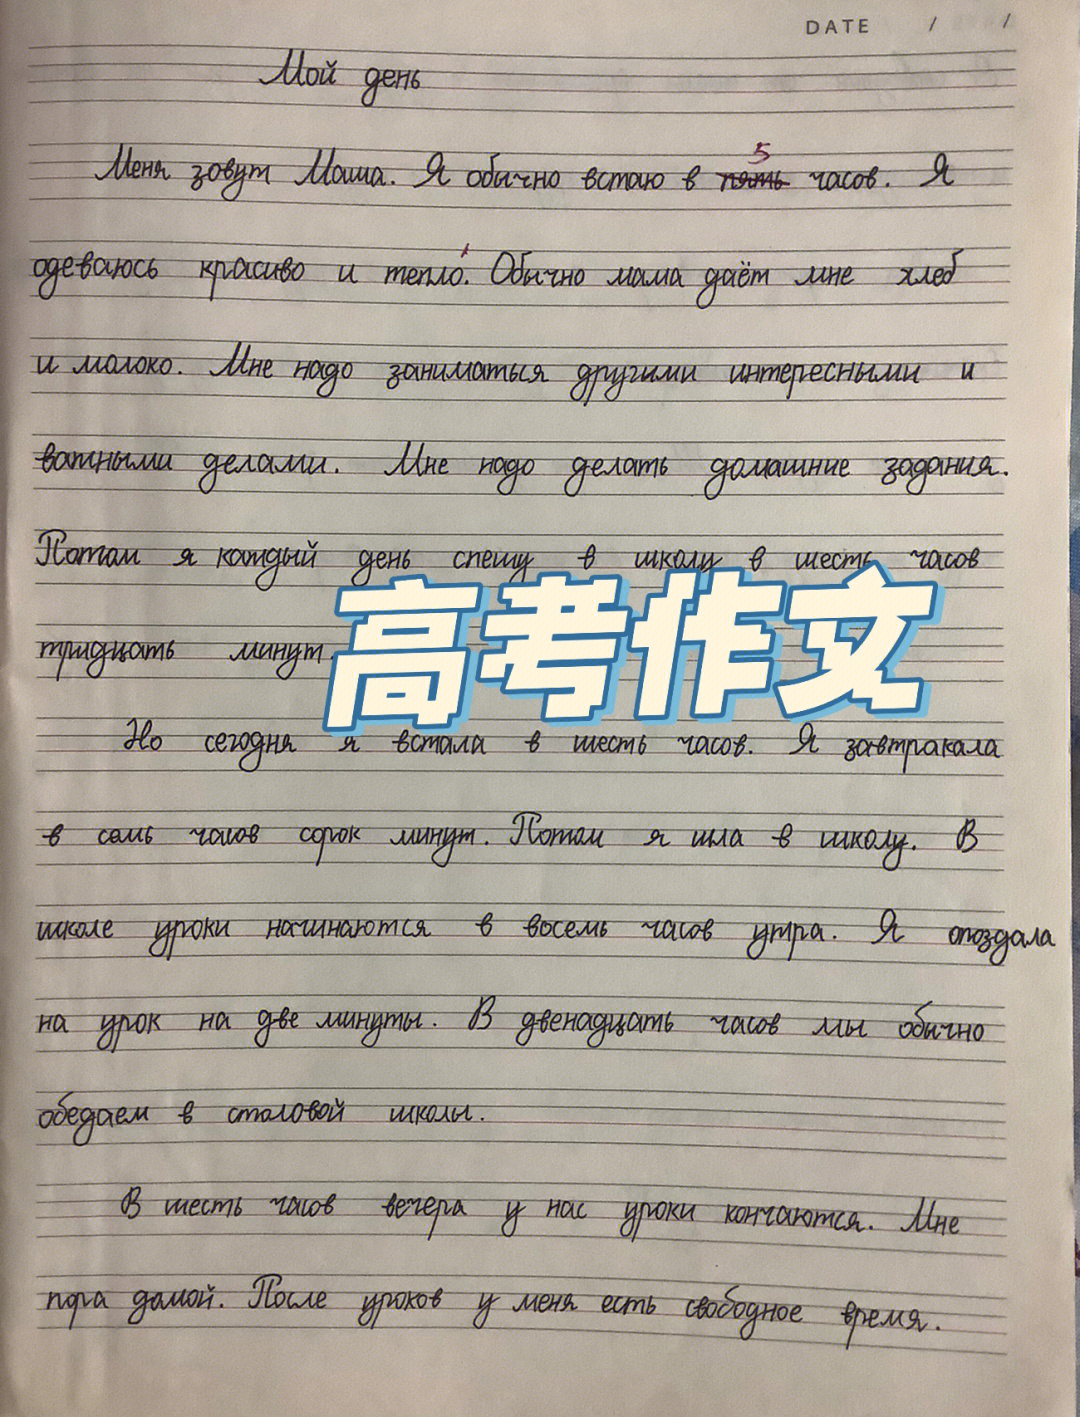 DATE / /
Мой день
5
Меня зовут Маша. Я обычно встаю в пять часов. Я
одеваюсь красиво и тепло. Обычно мама даёт мне хлеб
и молоко. Мне надо заниматься другими интересными и
важными делами. Мне надо делать домашние задания.
Потом я каждый день спешу в школу в шесть часов
тридцать минут.
高考作文
Но сегодня я встала в шесть часов. Я завтракала
в семь часов сорок минут. Потом я шла в школу. В
школе уроки начинаются в восемь часов утра. Я опоздала
на урок на две минуты. В двенадцать часов мы обычно
обедаем в столовой школы.
В шесть часов вечера у нас уроки кончаются. Мне
пора домой. После уроков у меня есть свободное время.